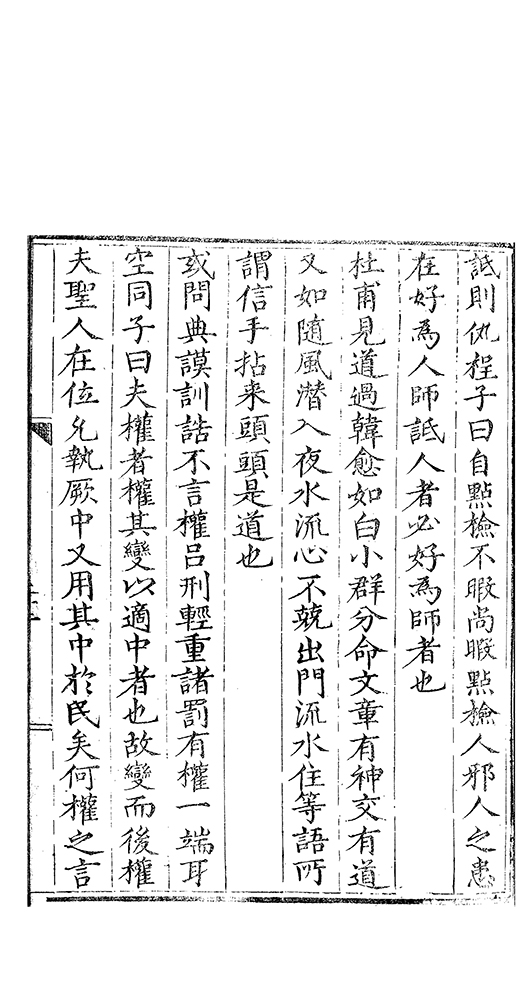 詆則仇程子曰自點檢不暇尚暇點檢人邪人之患
在好為人師詆人者必好為師者也
杜甫見道過韓愈如白小群分命文章有神交有道
又如隨風潛入夜水流心不競出門流水住等語所
謂信手拈来頭頭是道也
或問典謨訓誥不言權呂刑輕重諸罰有權一端耳
空同子曰夫權者權其變以適中者也故變而後權
夫聖人在位允執厥中又用其中於民矣何權之言